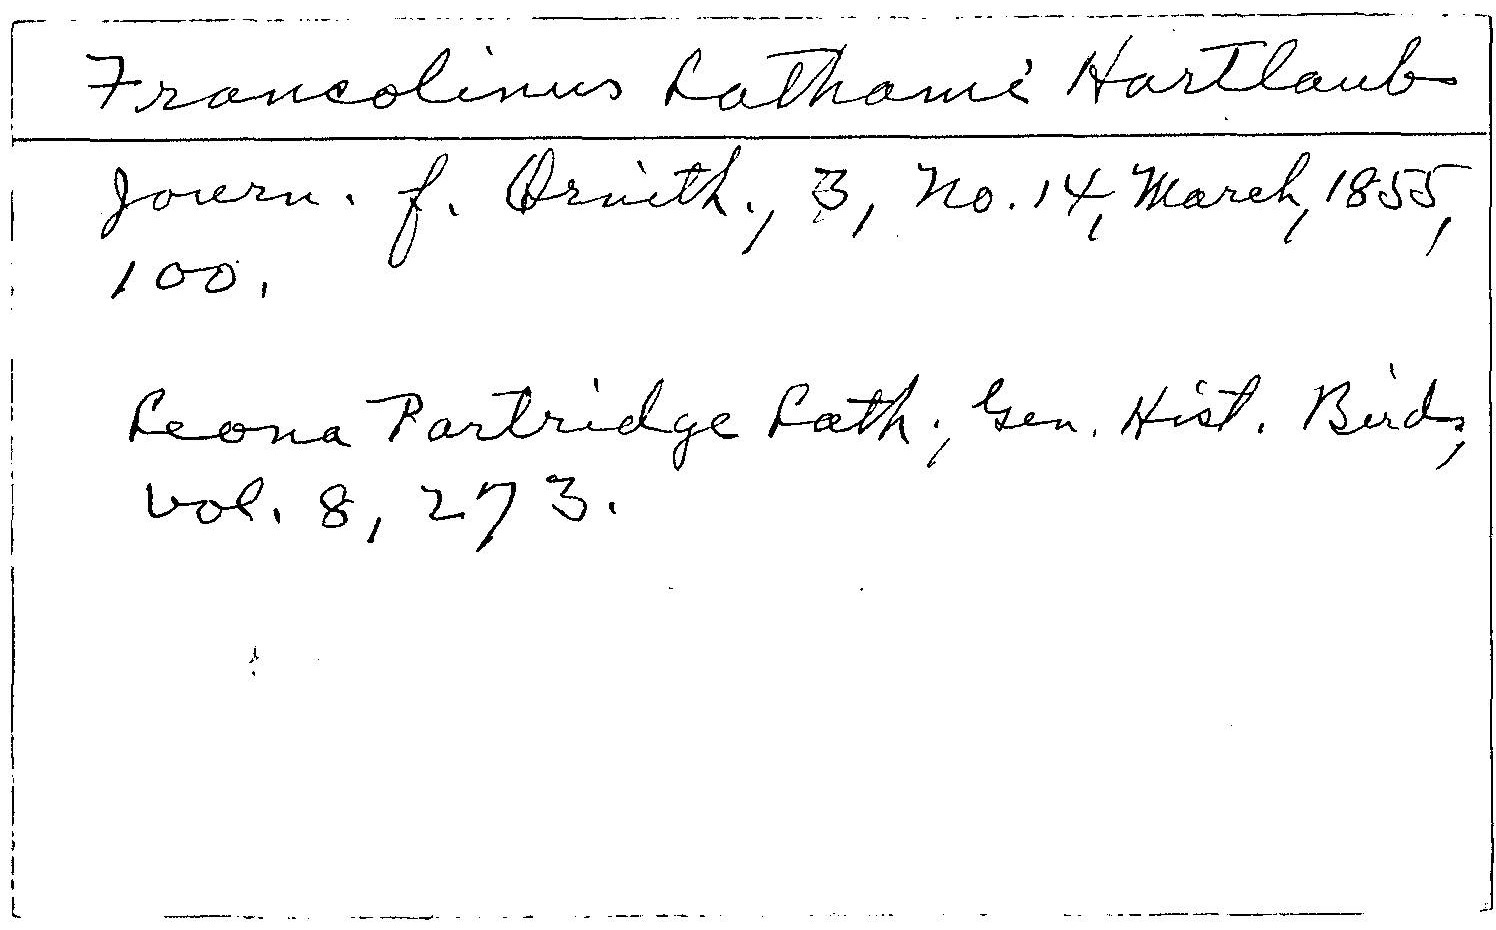 Francolinus Lathami Hartlaub
Journ. f. Ornith., 3, No. 14, March, 1855,
100.
Leona Partridge Lath., Gen. Hist. Birds,
vol. 8, 273.